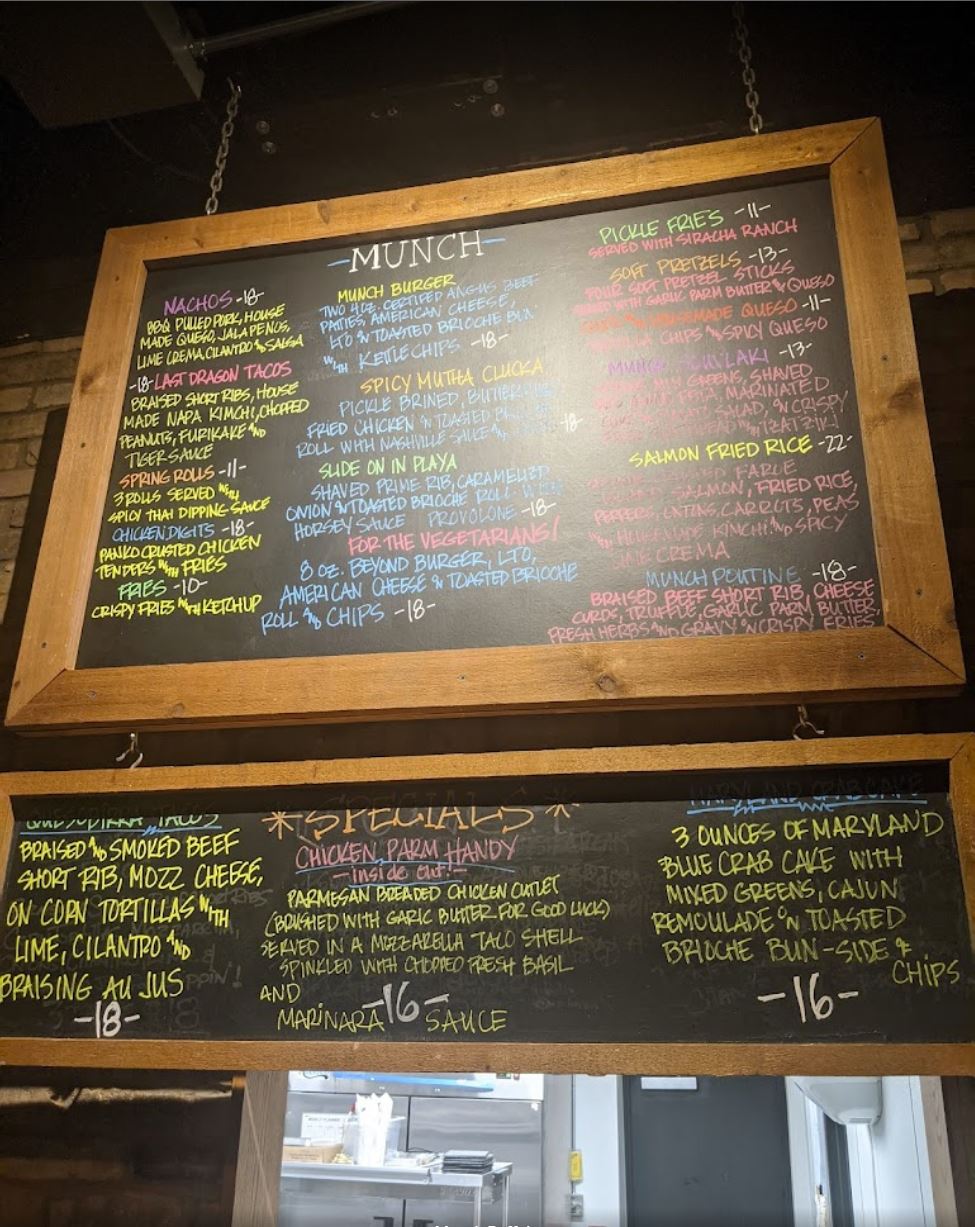 MUNCH
NACHOS -18-
BBQ PULLED PORK, HOUSE
MADE QUESO, JALAPENOS,
LIME CREMA, CILANTRO AND SALSA
-18- LAST DRAGON TACOS
BRAISED SHORT RIBS, HOUSE
MADE NAPA KIMCHI, CHOPPED
PEANUTS, FURIKAKE AND
TIGER SAUCE
SPRING ROLLS -11-
3 ROLLS SERVED WITH
SPICY THAI DIPPING SAUCE
CHICKEN DIGITS -18-
PANKO CRUSTED CHICKEN
TENDERS WITH FRIES
FRIES -10-
CRISPY FRIES WITH KETCHUP
MUNCH BURGER
TWO 4 OZ. CERTIFED ANGUS BEEF
PATIES, AMERICAN CHEESE,
LTO ON TOASTED BRIOCHE BUN
WITH KETTLE CHIPS -18-
SPICY MUTHA CLUCKA
PICKLE BRINED, BUTTER
FRIED CHICKEN ON TOASTED
ROLL WITH NASHVILLE SAUCE -18-
SLIDE ON IN PLAYA
SHAVED PRIME RIB, CARAMELIZED
ONION ON TOASTED BRIOCHE ROLL WITH
HORSEY SAUCE PROVOLONE -18-
FOR THE VEGETARIANS!
8 OZ. BEYOND BURGER, LTO,
AMERICAN CHEESE ON TOASTED BRIOCHE
ROLL AND CHIPS -18-
PICKLE FRIES -11-
SERVED WITH SIRACHA RANCH
SOFT PRETZELS -13-
FOUR SOFT PRETZEL STICKS
SERVED WITH GARLIC PARM BUTTER & QUESO
HOMEMADE QUESO -11-
CHIPS AND SPICY QUESO
-13-
GREENS, SHAVED
FETA, MARINATED
SALAD, ON CRISPY
TZATZIKI
SALMON FRIED RICE -22-
SALMON, FRIED RICE,
PEPPERS, ONIONS, CARROTS, PEAS
WITH HOUSEMADE KIMCHI AND SPICY
LIME CREMA
MUNCH POUTINE -18-
BRAISED BEEF SHORT RIB, CHEESE
CURDS, TRUFFLE, GARLIC PARM BUTTER,
FRESH HERBS AND GRAVY ON CRISPY FRIES
TACOS
BRAISED AND SMOKED BEEF
SHORT RIB, MOZZ CHEESE,
ON CORN TORTILLAS WITH
LIME, CILANTRO AND
BRAISING AU JUS
-18-
*SPECIALS*
CHICKEN PARM HANDY
-inside out!-
PARMESAN BREADED CHICKEN CUTLET
(BRUSHED WITH GARLIC BUTTER FOR GOOD LUCK)
SERVED IN A MOZZARELLA TACO SHELL
SPINKLED WITH CHOPPED FRESH BASIL
AND
MARINARA -16- SAUCE
MARYLAND CRAB CAKE
3 OUNCES OF MARYLAND
BLUE CRAB CAKE WITH
MIXED GREENS, CAJUN
REMOULADE ON TOASTED
BRIOCHE BUN - SIDE OF
CHIPS
-16-